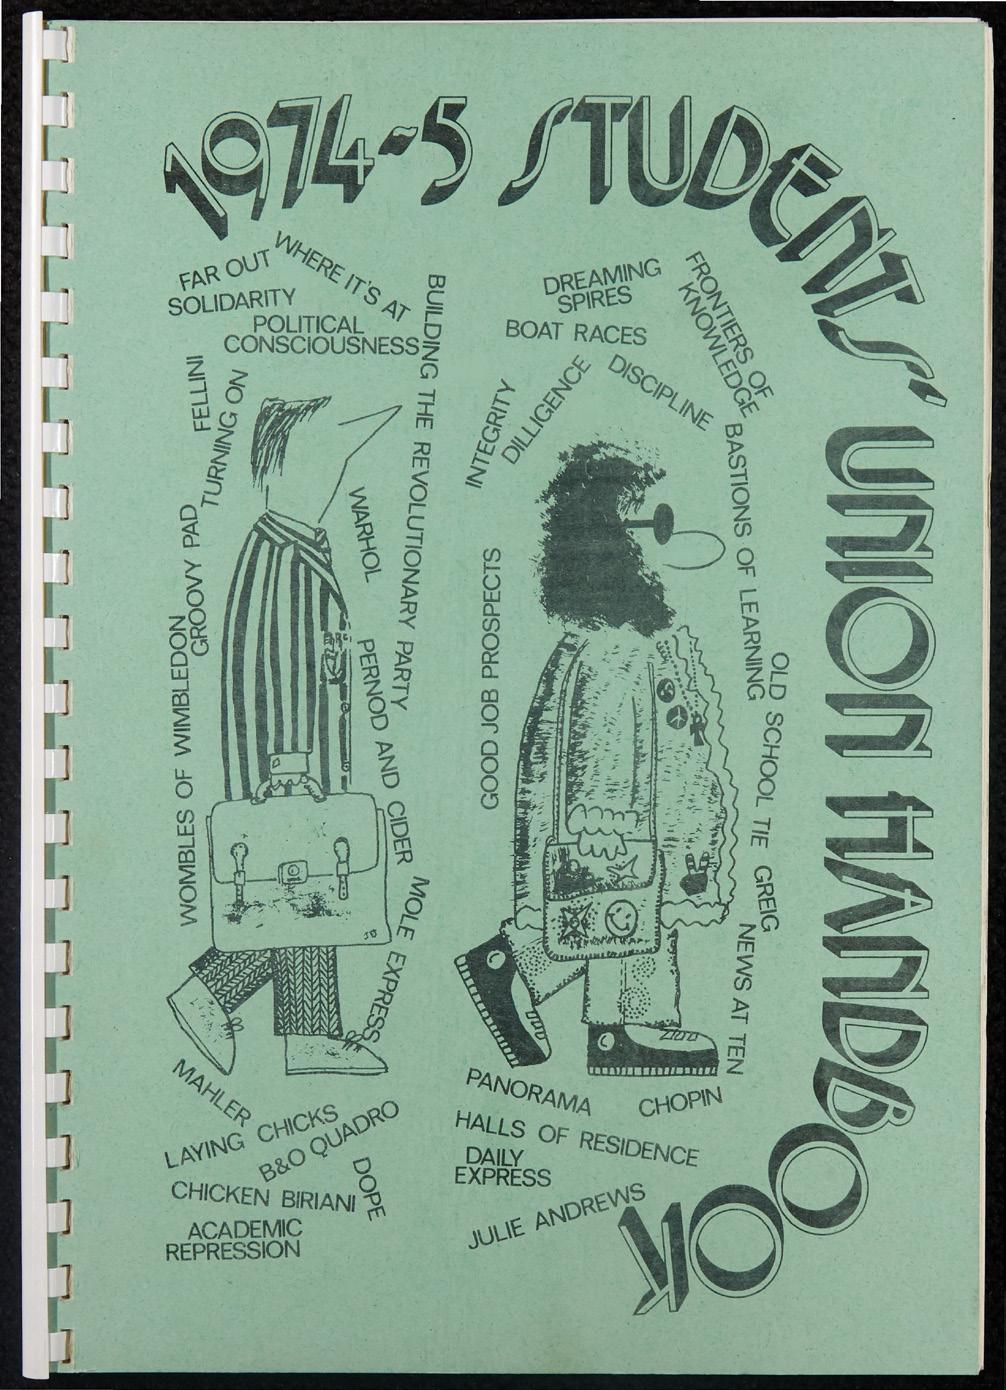 1974-5 STUDENTS' UNION HANDBOOK
FAR OUT
WHERE IT'S AT
SOLIDARITY
POLITICAL
CONSCIOUSNESS
FELLINI
TURNING ON
GROOVY PAD
WOMBLES OF WIMBLEDON
BUILDING THE REVOLUTIONARY PARTY
WARHOL
PERNOD AND CIDER
MOLE EXPRESS
JB
MAHLER
LAYING CHICKS
B&O QUADRO
DOPE
CHICKEN BIRIANI
ACADEMIC
REPRESSION
DREAMING
SPIRES
BOAT RACES
FRONTIERS OF
KNOWLEDGE
DISCIPLINE
INTEGRITY
DILLIGENCE
BASTIONS OF LEARNING
GOOD JOB PROSPECTS
OLD SCHOOL TIE
GREIG
NEWS AT TEN
PANORAMA
CHOPIN
HALLS OF RESIDENCE
DAILY
EXPRESS
JULIE ANDREWS